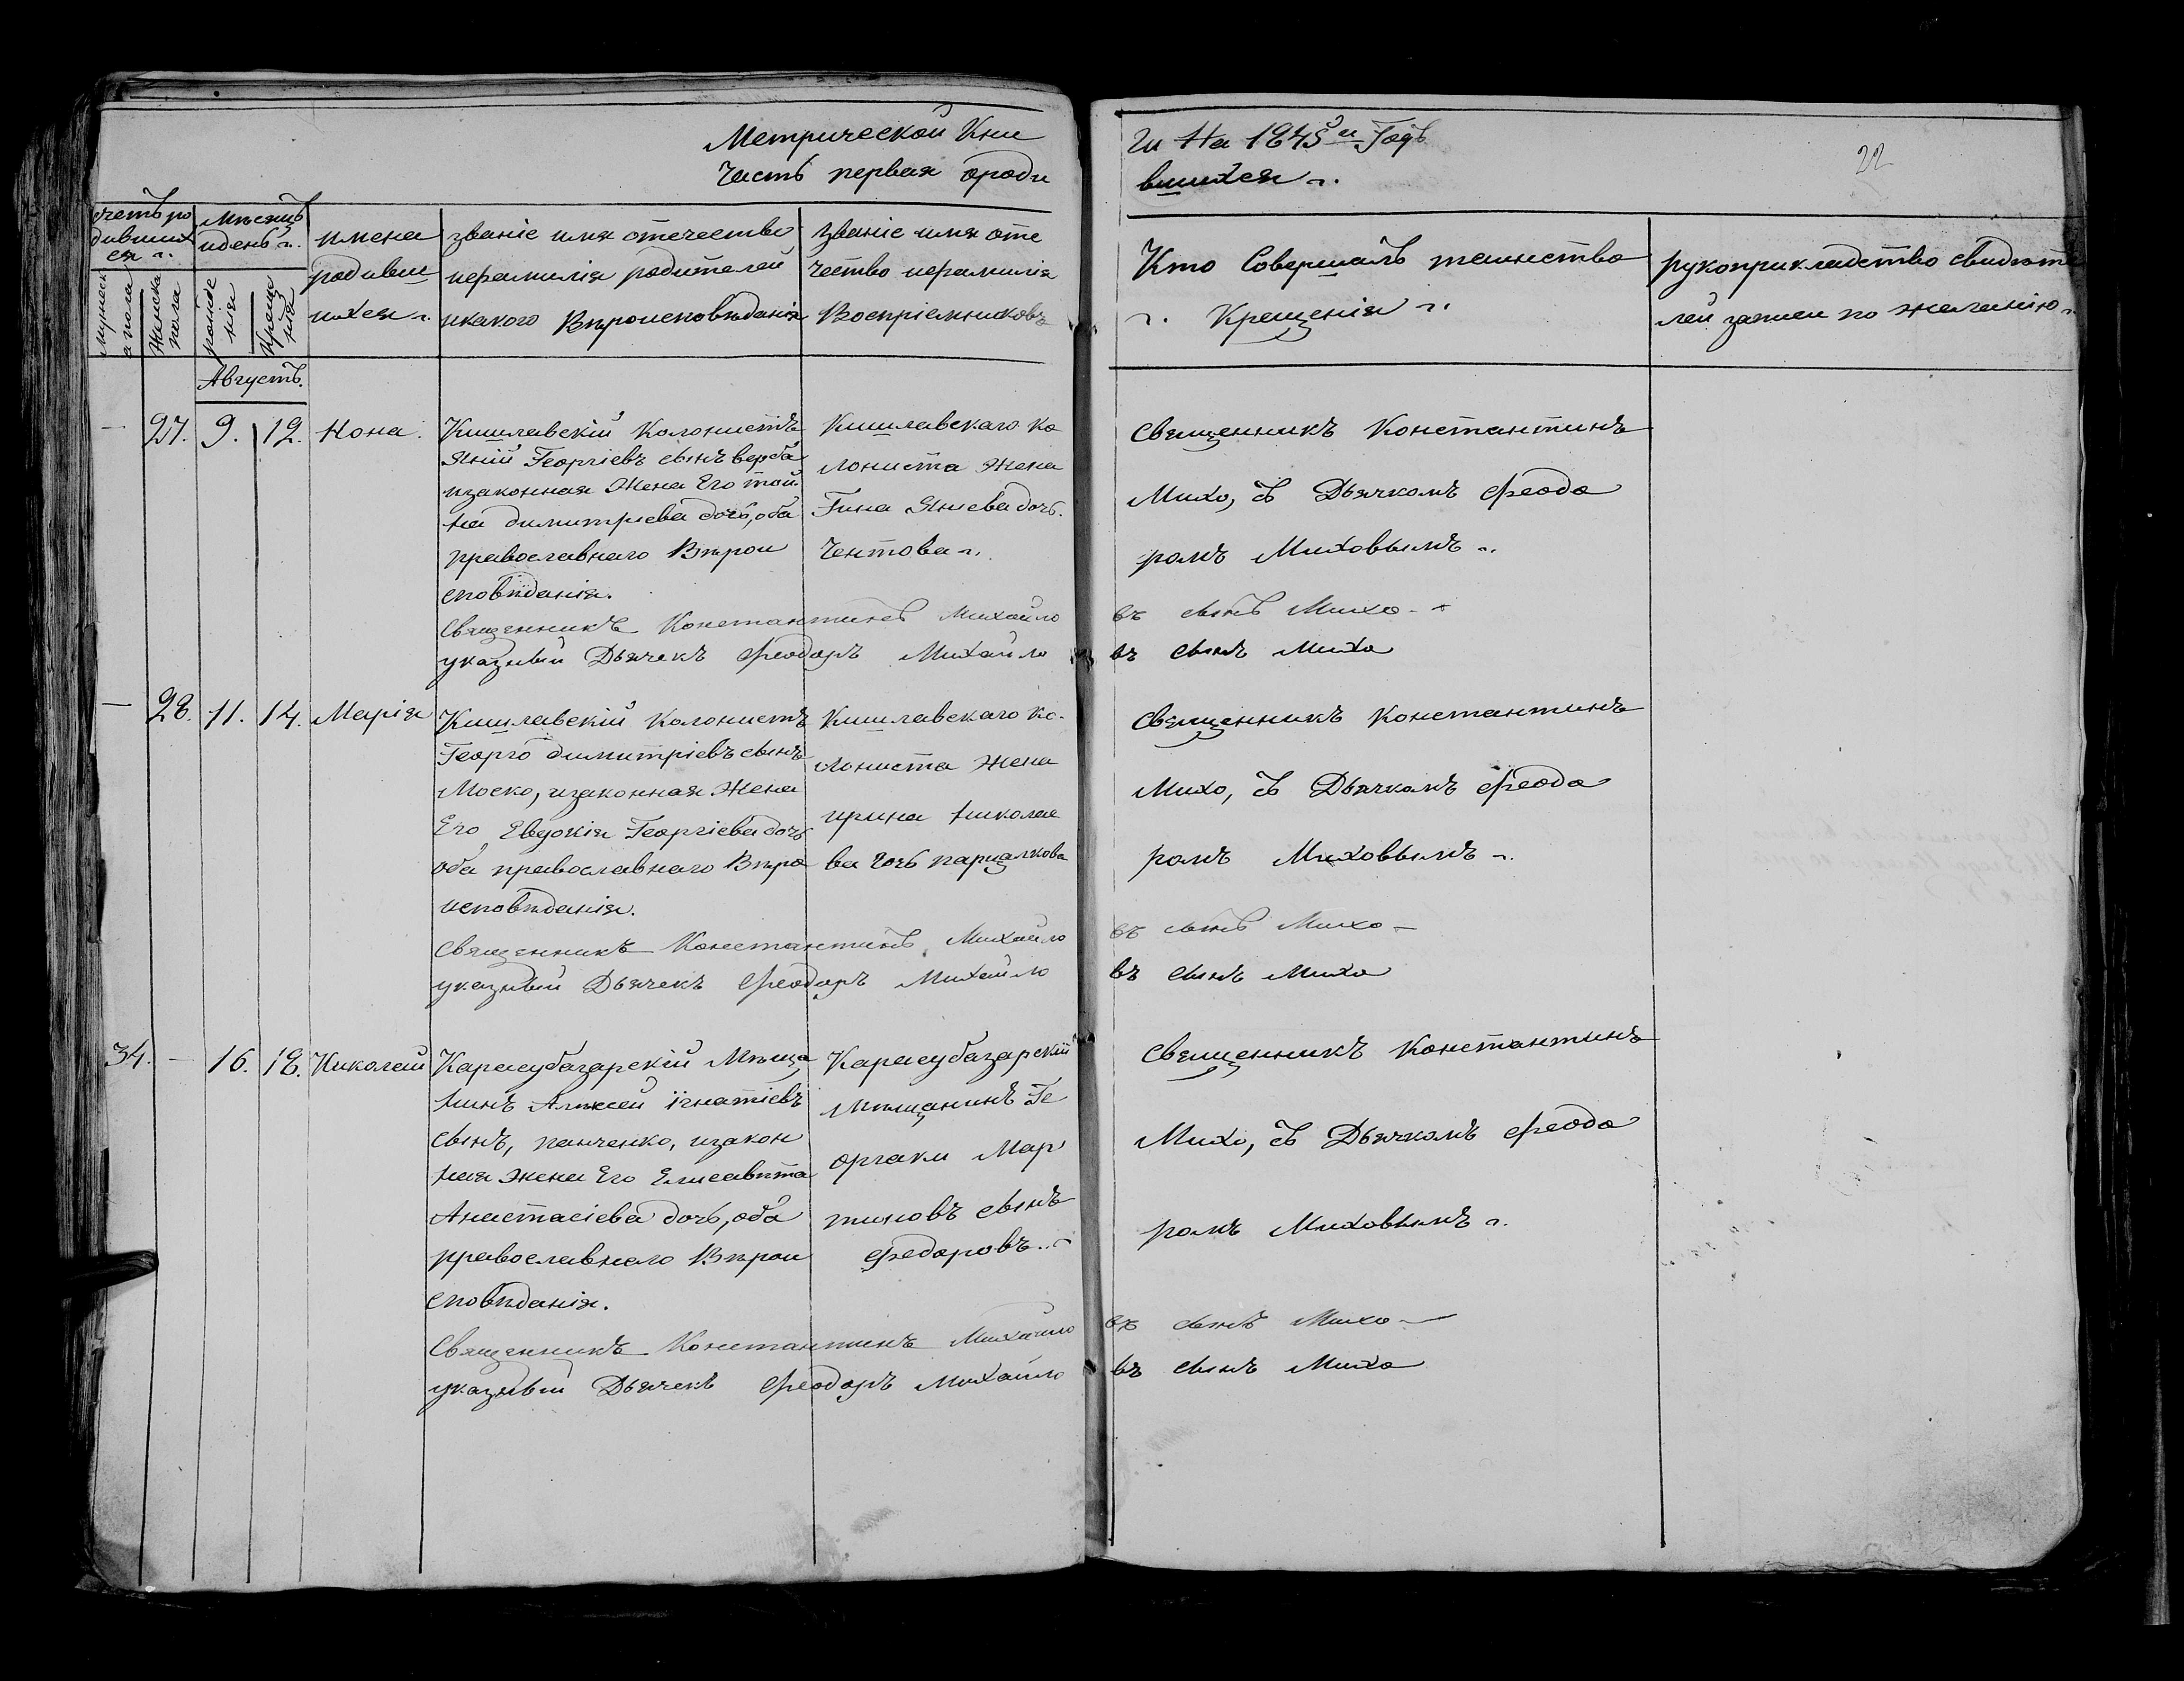 Метрической Кни
ги На 1845й Годъ
22
Часть первая ороди
вшихся
счетъ ро
дивших
ся
Мѣсяцъ
идень
имена
родивш
ихся
званіе имя отечество
ифамилія родителей
икакого Вѣроисповѣданія
Званіе имя оте
чество ифамилія
Воспріемниковъ
Кто Совершалъ таинство
Крещенія
рукоприкладство свидѣте
лей записи по желанію
Мужеск
а пола
Женска
пола
рожде
нія
Креще
нія
Августъ.
— 27. 9. 12. Нона.
Кишлавскій Колонистъ
Яній Георгіевъ сынъ верба
изаконная Жена Его той
на димитриева дочь, оба
православнаго Вѣрои
сповѣданія.
Кишлавскаго ко
лониста Жена
Гина Янева дочь.
Чентова
Священникъ Константинъ
Михо, съ Дьячкомъ Феодо
ромъ Миховымъ
Священникъ Константинъ Михайло
въ сынъ Михо
указный Дьячекъ Феодоръ Михайло
въ сынъ Михо
— 28. 11. 14. Марія
Кишлавскій колонистъ
Георго димитріевъ сынъ
Моско, изаконная Жена
Его Евдокія Георгіева дочь
оба православнаго Вѣро
исповѣданія.
Кишлавскаго ко-
лониста Жена
ирина николае
ва дочь парцалкова
Священникъ Константинъ
Михо, съ Дьячкомъ Феодо
ромъ Миховымъ
Священникъ Константинъ Михайло
въ сынъ Михо
указный Дьячекъ Феодоръ Михайло
въ сынъ Михо
34. — 16. 18. Николай
Карасубазарскій Мѣща
нинъ Алексей ігнатіевъ
сынъ, панченко, изакон
ная жена Его Елисавѣта
Анастасіева дочь, оба
православнаго Вѣрои
сповѣданія.
Карасубазарскій
Мѣщанинъ Ге
оргаки Мар
тиновъ сынъ
Федоровъ
Священникъ Константинъ
Михо, съ Дьячкомъ Феодо
ромъ Миховымъ
Священникъ Константинъ Михайло
въ сынъ Михо
указный Дьячекъ Феодоръ Михайло
въ сынъ Михо